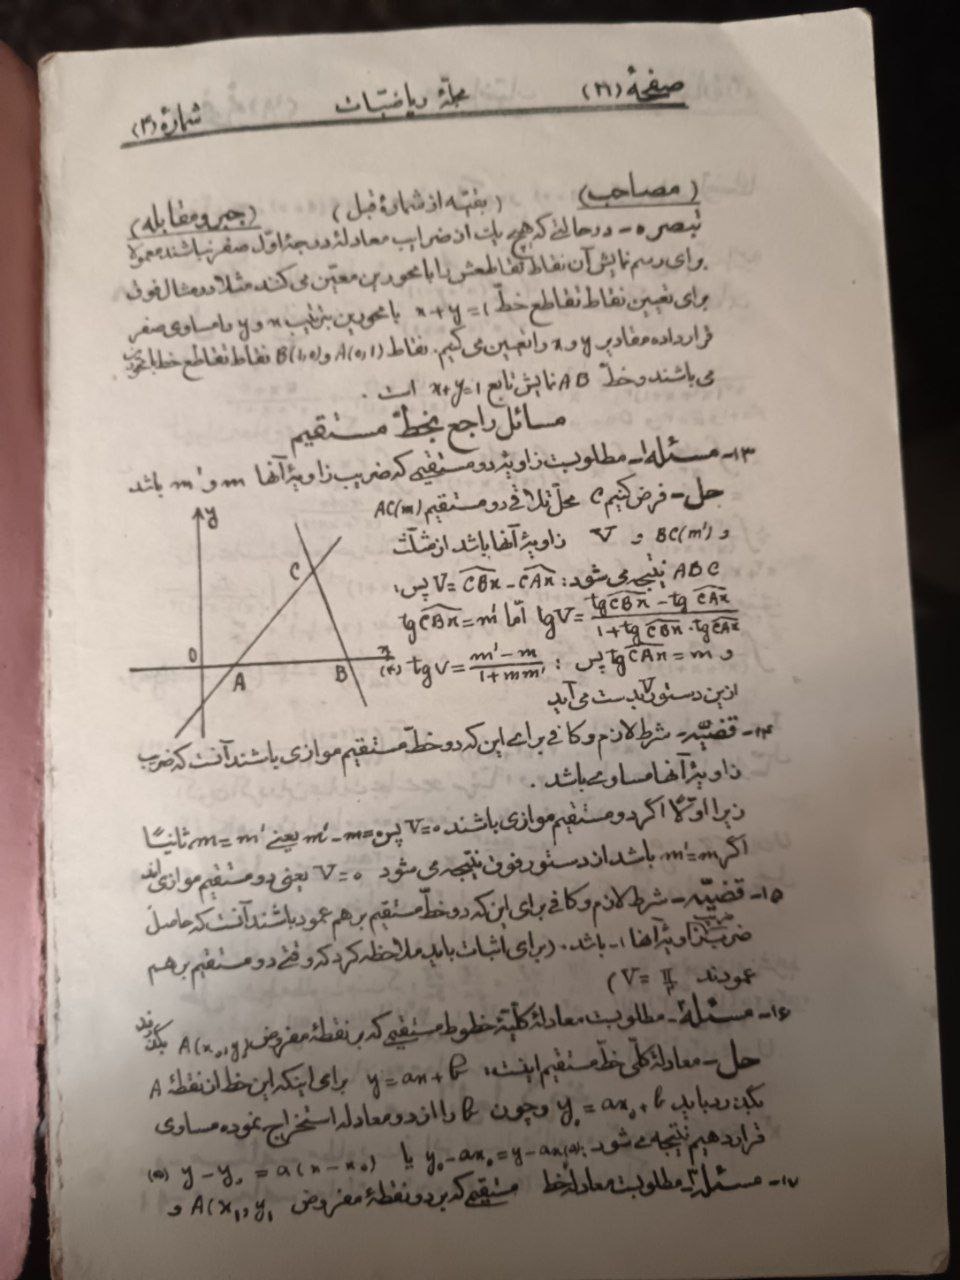 صفحهٔ (۲۱) مجلّهٔ ریاضیات شمارهٔ (۳)
(مصاحب) (بقیّه از شمارهٔ قبل) (جبر و مقابله)
تبصره ۵- در حالتی که هیچ یک از ضرایب معادلهٔ درجهٔ اوّل صفر نباشند معمولا
برای رسم نمایش آن نقاط تقاطعش را با محورین معیّن می کنند مثلا در مثال فوق
برای تعیین نقاط تقاطع خطّ x+y=1 با محورین بترتیب x و y را مساوی صفر
قرار داده مقادیر y و x را تعیین می کنیم. نقاط A(0,1) و B(1,0) نقاط تقاطع خط با محورین
می باشند و خطّ AB نمایش تابع x+y=1 است .
مسائل راجع بخطّ مستقیم
۱۳- مسئله ۱- مطلوبست زاویهٔ دو مستقیمی که ضریب زاویهٔ آنها m و m' باشد
حل- فرض کنیم C محلّ تلاقی دو مستقیم AC(m)
و BC(m') و V زاویهٔ آنها باشد از مثلّث
ABC نتیجه می شود: V=CBx-CAx پس:
tgV= (tgCBx - tgCAx)/(1+tgCBx·tgCAx) امّا tgCBx=m'
و tgCAx=m پس: tgV= (m'-m)/(1+mm') (۴)
از این دستور V بدست می آید
y
C
O
A
B
x
۱۴- قضیّه- شرط لازم و کافی برای این که دو خطّ مستقیم موازی باشند آنست که ضریب
زاویهٔ آنها مساوی باشد .
زیرا اوّلاً اگر دو مستقیم موازی باشند V=0 پس m'-m=0 یعنی m=m'، ثانیاً
اگر m'=m باشد از دستور فوق نتیجه می شود V=0 یعنی دو مستقیم موازی اند
۱۵- قضیّه- شرط لازم و کافی برای این که دو خطّ مستقیم بر هم عمود باشند آنست که حاصل
ضرب ضریب زاویهٔ آنها ۱- باشد. (برای اثبات باید ملاحظه کرد که وقتی دو مستقیم بر هم
عمودند V=π/2)
۱۶- مسئلهٔ- مطلوبست معادلهٔ کلّیّهٔ خطوط مستقیمی که بر نقطهٔ مفروض A(x₀,y₀) بگذرند
حل- معادلهٔ کلّی خطّ مستقیم اینست: y=ax+b برای اینکه این خط از نقطهٔ A
بگذرد باید y₀=ax₀+b و چون b را از دو معادله استخراج نموده مساوی
قرار دهیم نتیجه می شود: y₀-ax₀=y-ax یا y-y₀=a(x-x₀) (۵)
۱۷- مسئلهٔ ۳- مطلوبست معادلهٔ خط مستقیمی که بر دو نقطهٔ مفروض A(x₁,y₁ و